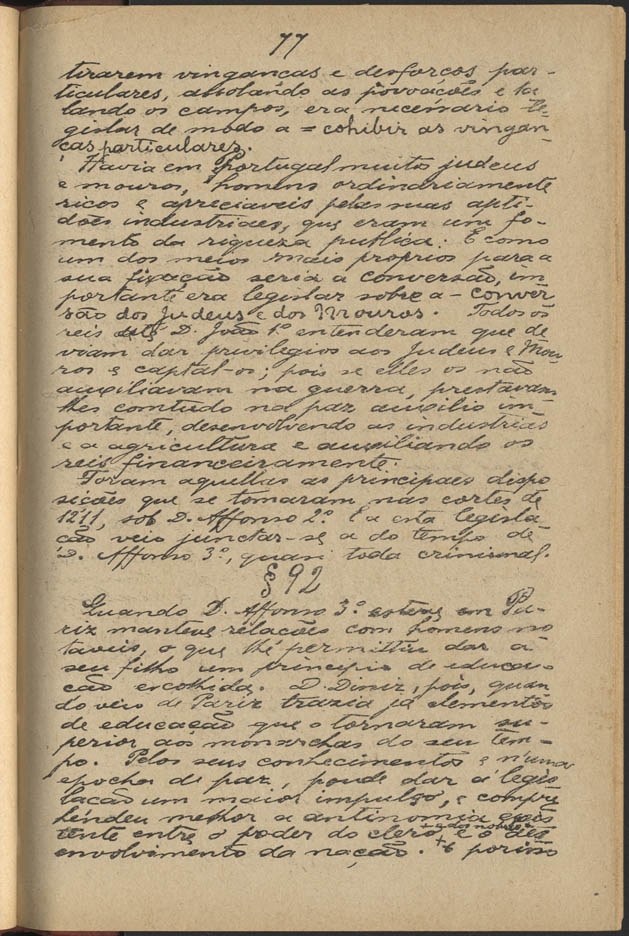 77
tirarem vinganças e desforços par-
ticulares, assolando as povoações e ta
lando os campos, era necessario le-
gislar de modo a = cohibir as vingan-
ças particulares.
Havia em Portugal muitos judeus
e mouros, homens ordinariamente
ricos e apreciaveis pelas suas apti-
dões industriaes, que eram um fo-
mento da riqueza publica. E como
um dos meios mais proprios para a
sua fixação seria a conversão, im
portante era legislar sobre a - conver
são dos Judeus e dos Mouros. Todos os
reis até D. João 1º entenderam que de
viam dar privilegios aos Judeus e Mou-
ros e captal-os; pois se elles os não
auxiliavam na guerra, prestavam
lhes comtudo na paz auxilio im-
portante, desenvolvendo as industrias
e a agricultura e auxiliando os
reis financeiramente.
Foram aquellas as principaes dispo
sições que se tomaram nas cortes de
1211, sob D. Affonso 2º. E a esta legisla-
ção veio junctar-se a do tempo de
D. Affonso 3º, quasi toda criminal.
§ 92
Quando D. Affonso 3º esteve em Pa-
riz manteve relações com homens no
taveis, o que lhe permittiu dar a
seu filho um principio de educa-
ção escolhida. D. Diniz, pois, quan
do veio de Pariz trazia já elementos
de educação que o tornaram su-
perior aos monarchas do seu tem-
po. Pelos seus conhecimentos e n'uma
epocha de paz, poude dar á legis
lação um maior impulso, e compre
hendeu melhor a antinomia exis
tente entre o poder do clero, e o des
envolvimento da nação. E por isso